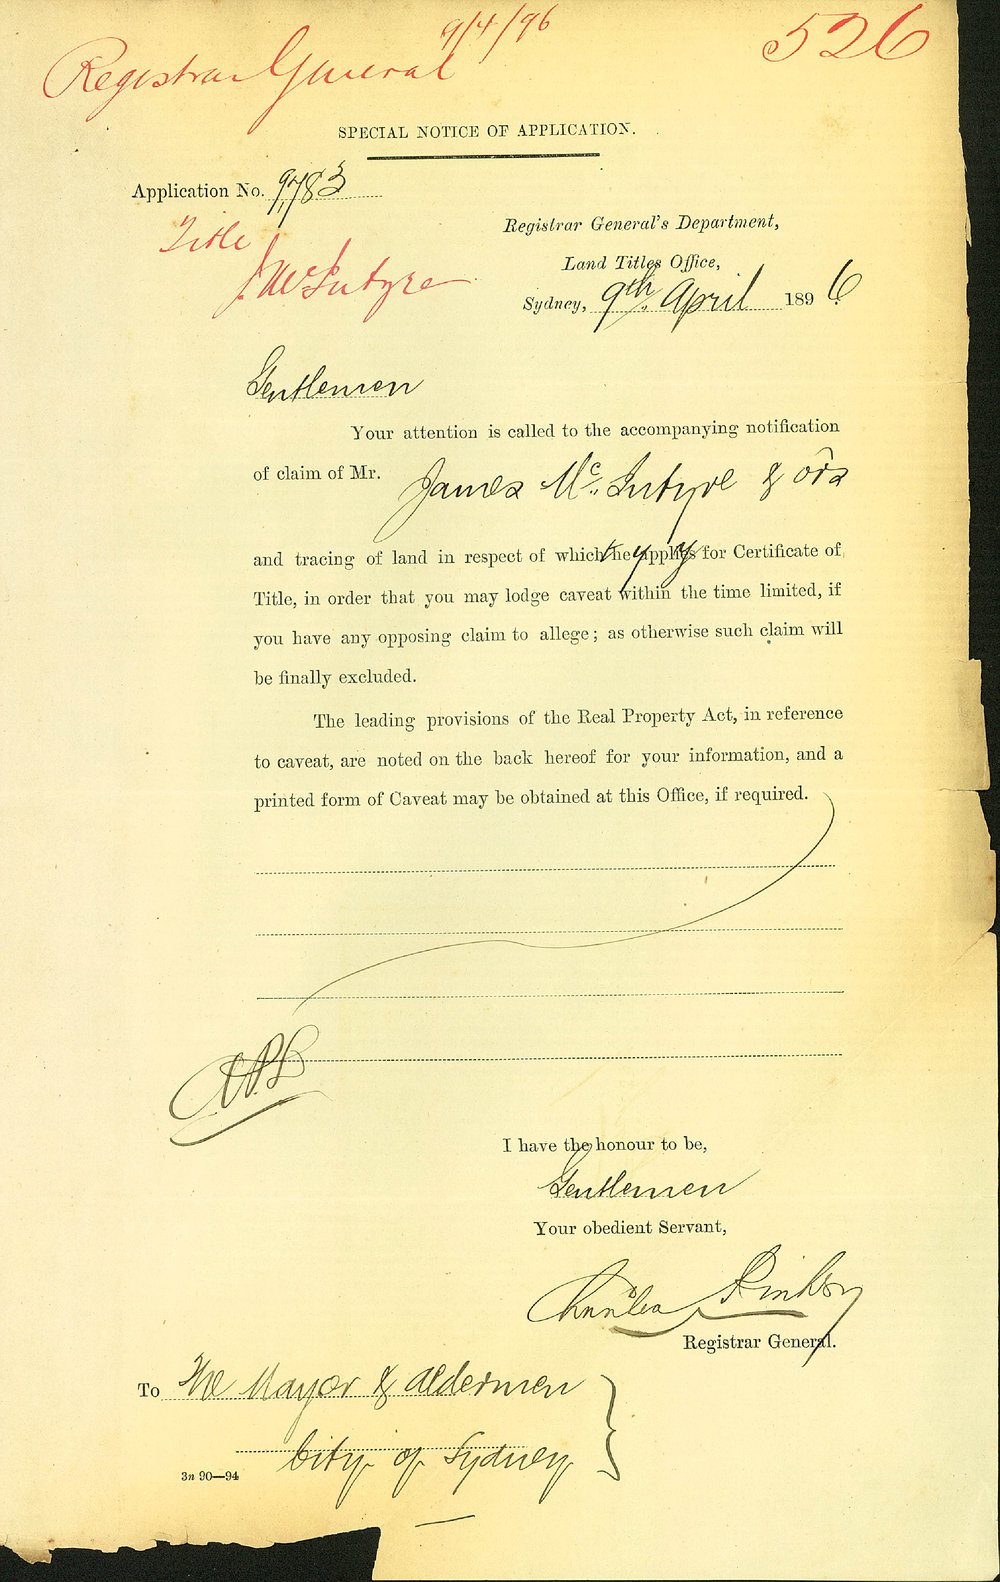 9/4/96
526
Registrar General
SPECIAL NOTICE OF APPLICATION.
Application No. 9,783
Title
J. McIntyre
Registrar General's Department,
Land Titles Office,
Sydney, 9th April 1896.
Gentlemen
Your attention is called to the accompanying notification
of claim of Mr. James Mc.Intyre & ors
and tracing of land in respect of which they apply for Certificate of
Title, in order that you may lodge caveat within the time limited, if
you have any opposing claim to allege; as otherwise such claim will
be finally excluded.
The leading provisions of the Real Property Act, in reference
to caveat, are noted on the back hereof for your information, and a
printed form of Caveat may be obtained at this Office, if required.
I have the honour to be,
Gentlemen
Your obedient Servant,
Charles Pinhey
Registrar General.
To The Mayor & Aldermen
City of Sydney
3n 90—94